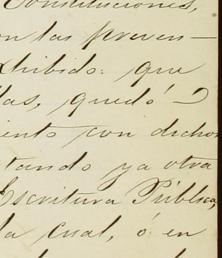 Constituciones,
on las preven-
xhibido: que
las, quedó
iento con dichos
tando ya otra
Escritura Pública,
la cual, ó en